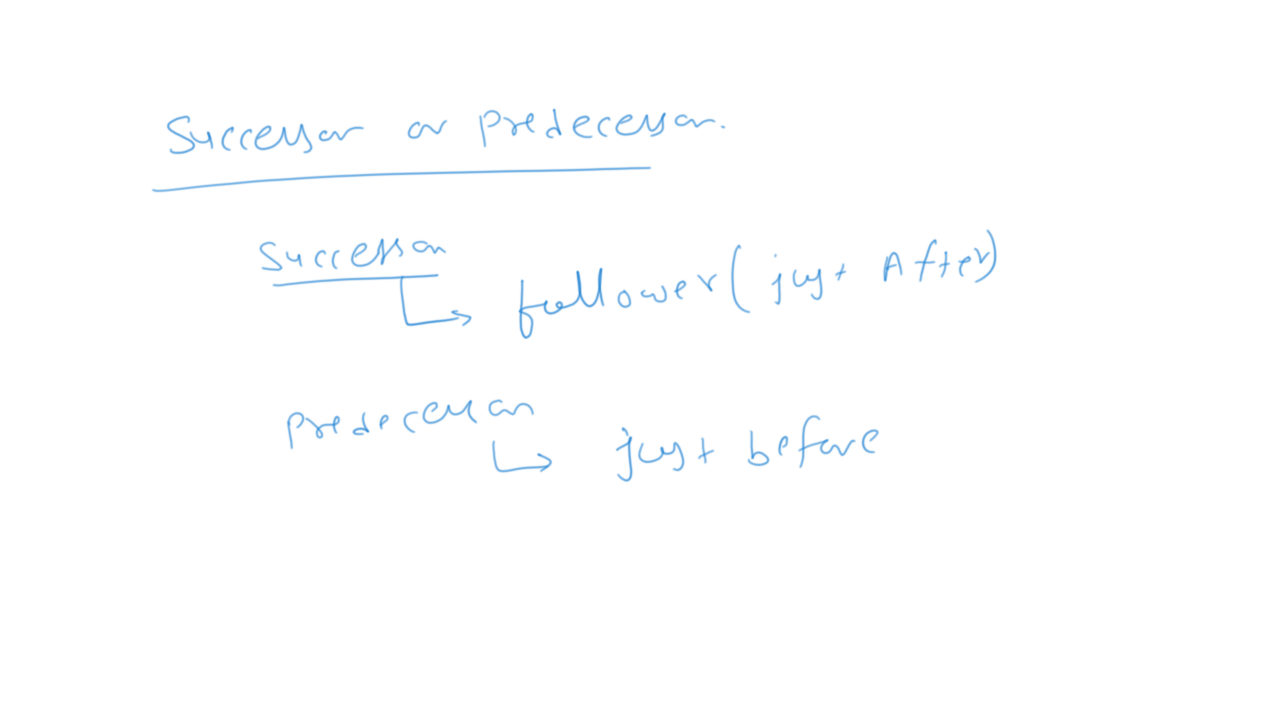 Successor or Predecessor.
Successor
follower (just After)
Predecessor
just before